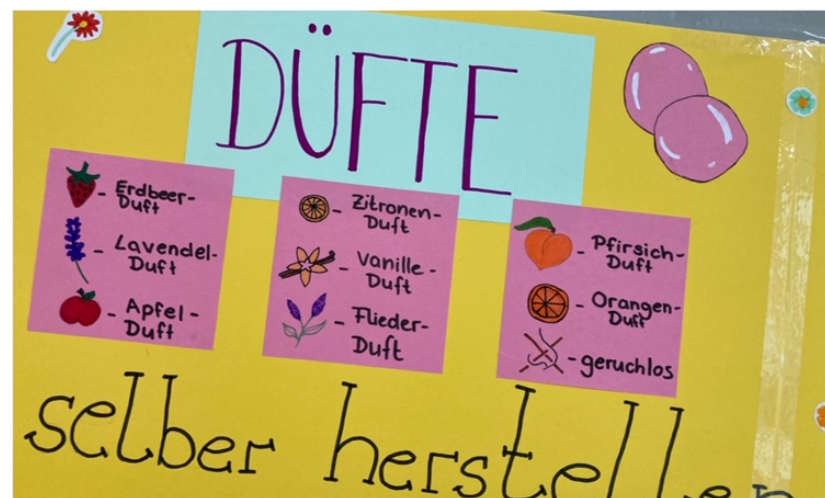 DÜFTE
- Erdbeer-
Duft
- Lavendel-
Duft
- Apfel-
Duft
- Zitronen-
Duft
- Vanille-
Duft
- Flieder-
Duft
- Pfirsich-
Duft
- Orangen-
Duft
- geruchlos
selber hersteller